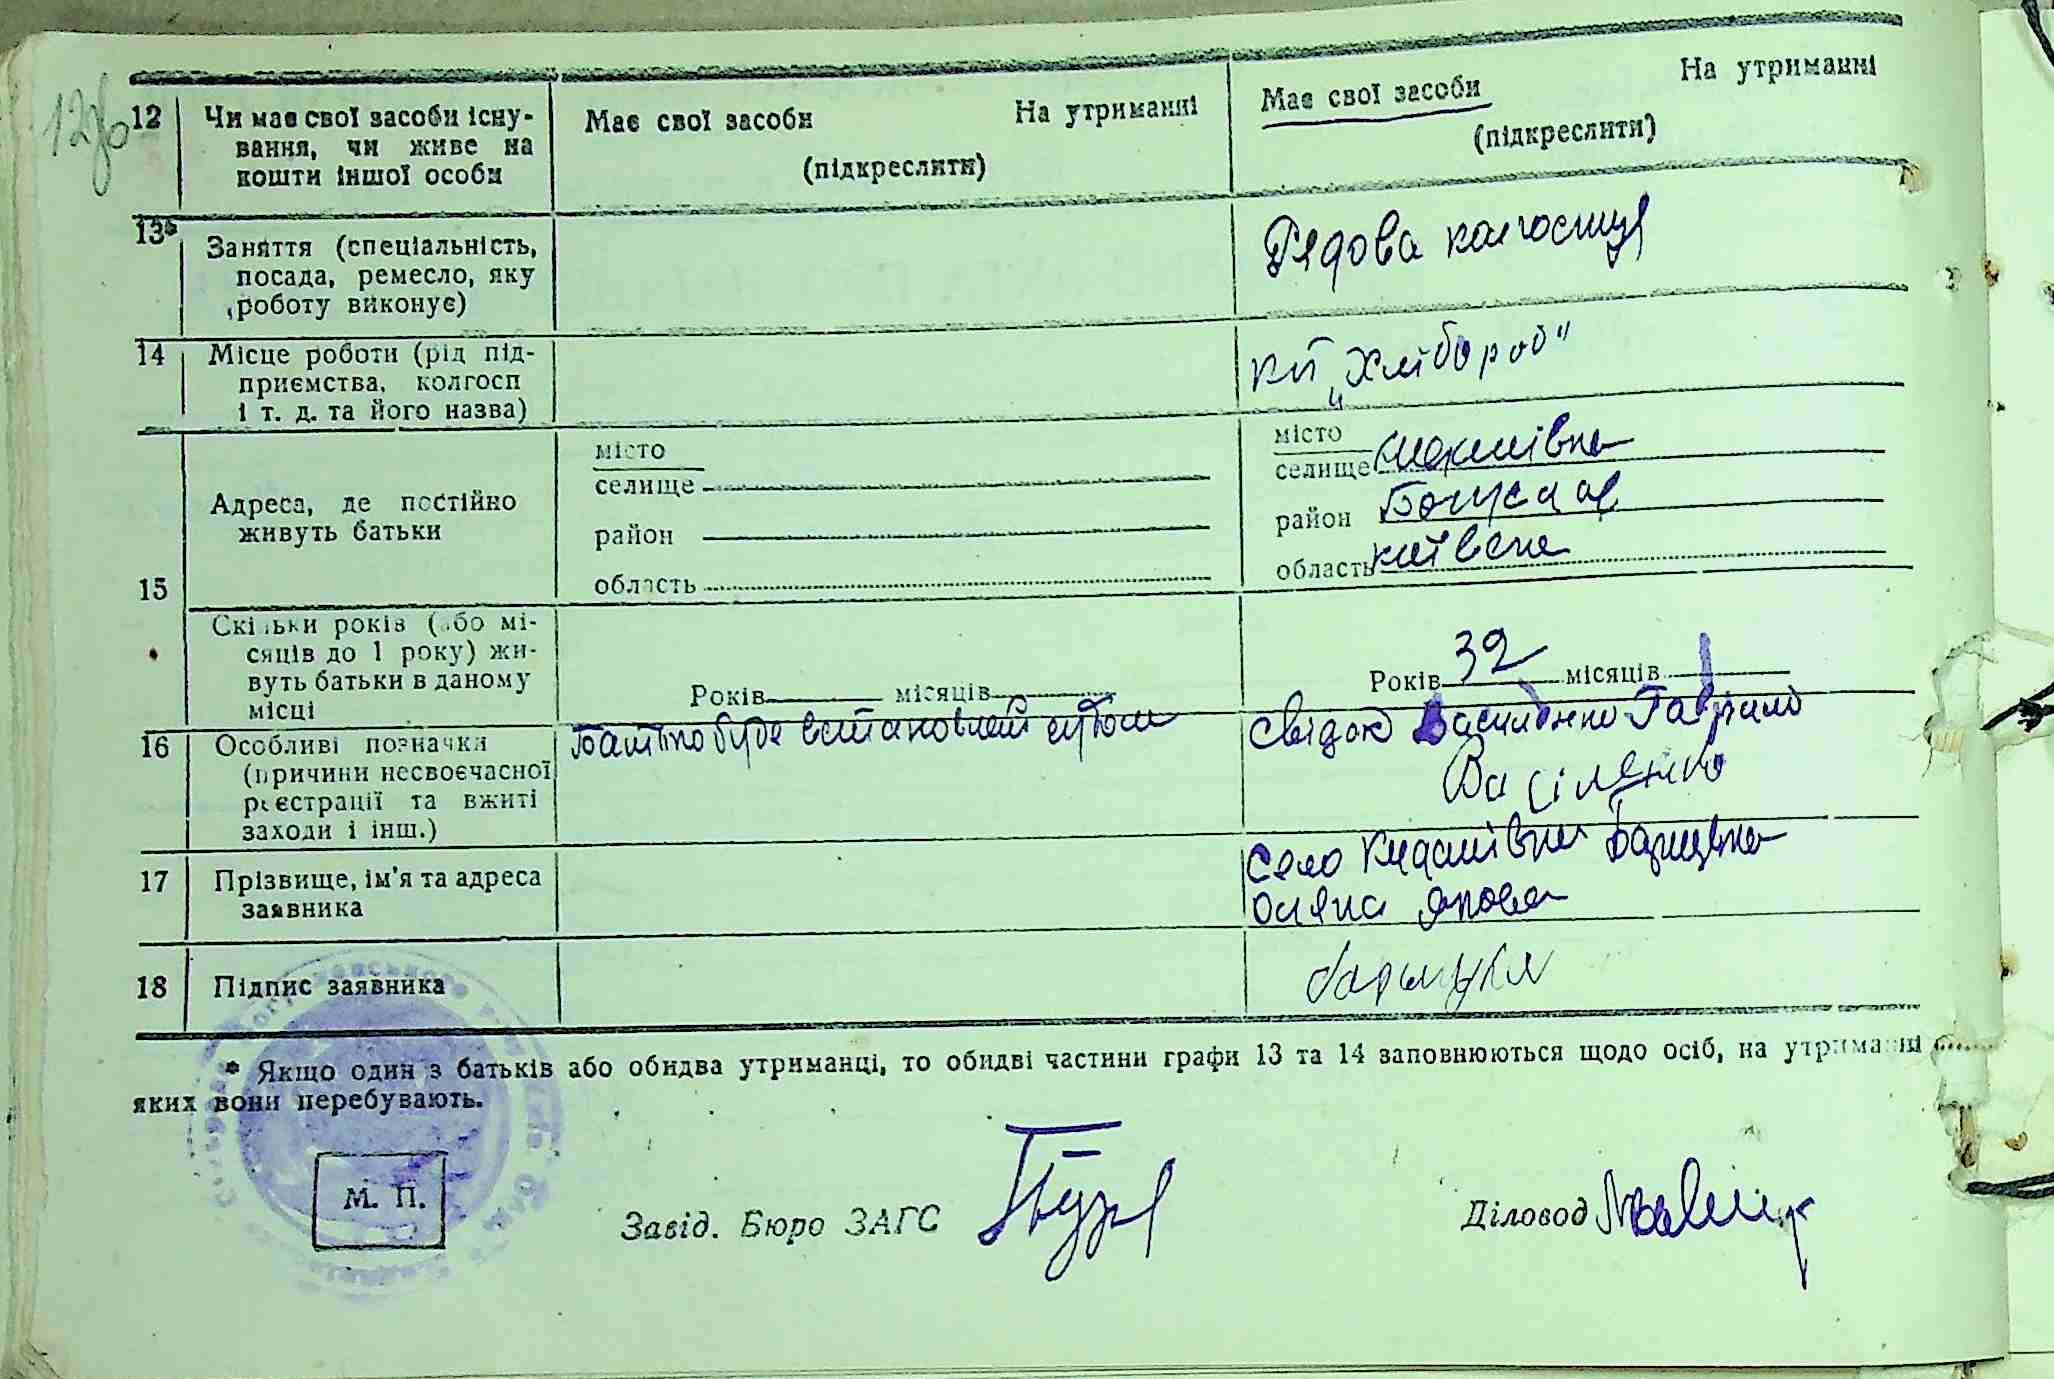 12 Чи має свої засоби існу-
вання, чи живе на
кошти іншої особи
Має свої засоби На утриманні
(підкреслити)
Має свої засоби На утриманні
(підкреслити)
13* Заняття (спеціальність,
посада, ремесло, яку
роботу виконує)
Рядова колгоспниця
14 Місце роботи (рід під-
приємства, колгосп
і т. д. та його назва)
к-п „Хлібороб"
15 Адреса, де постійно
живуть батьки
місто
селище
район
область
місто
селище
район Богуслав
область київська
Скільки років (або мі-
сяців до 1 року) жи-
вуть батьки в даному
місці
Років місяців
Років 32 місяців
16 Особливі позначки
(причини несвоєчасної
реєстрації та вжиті
заходи і інш.)
Батько буде встановлений судом
свідок Василенко Гаврило
Василенко
17 Прізвище, ім'я та адреса
заявника
село
18 Підпис заявника
* Якщо один з батьків або обидва утриманці, то обидві частини графи 13 та 14 заповнюються щодо осіб, на утриманні
яких вони перебувають.
М. П.
Завід. Бюро ЗАГС
Діловод